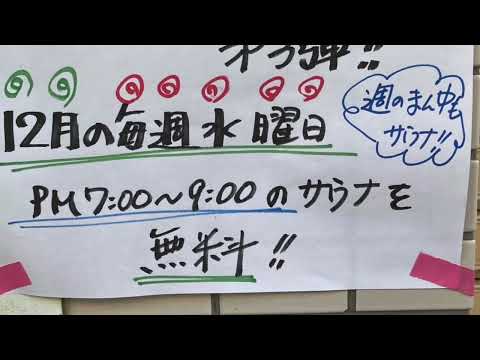 12月の毎週水曜日
週のまん中も
サウナ!!
PM7:00～9:00のサウナを
無料!!